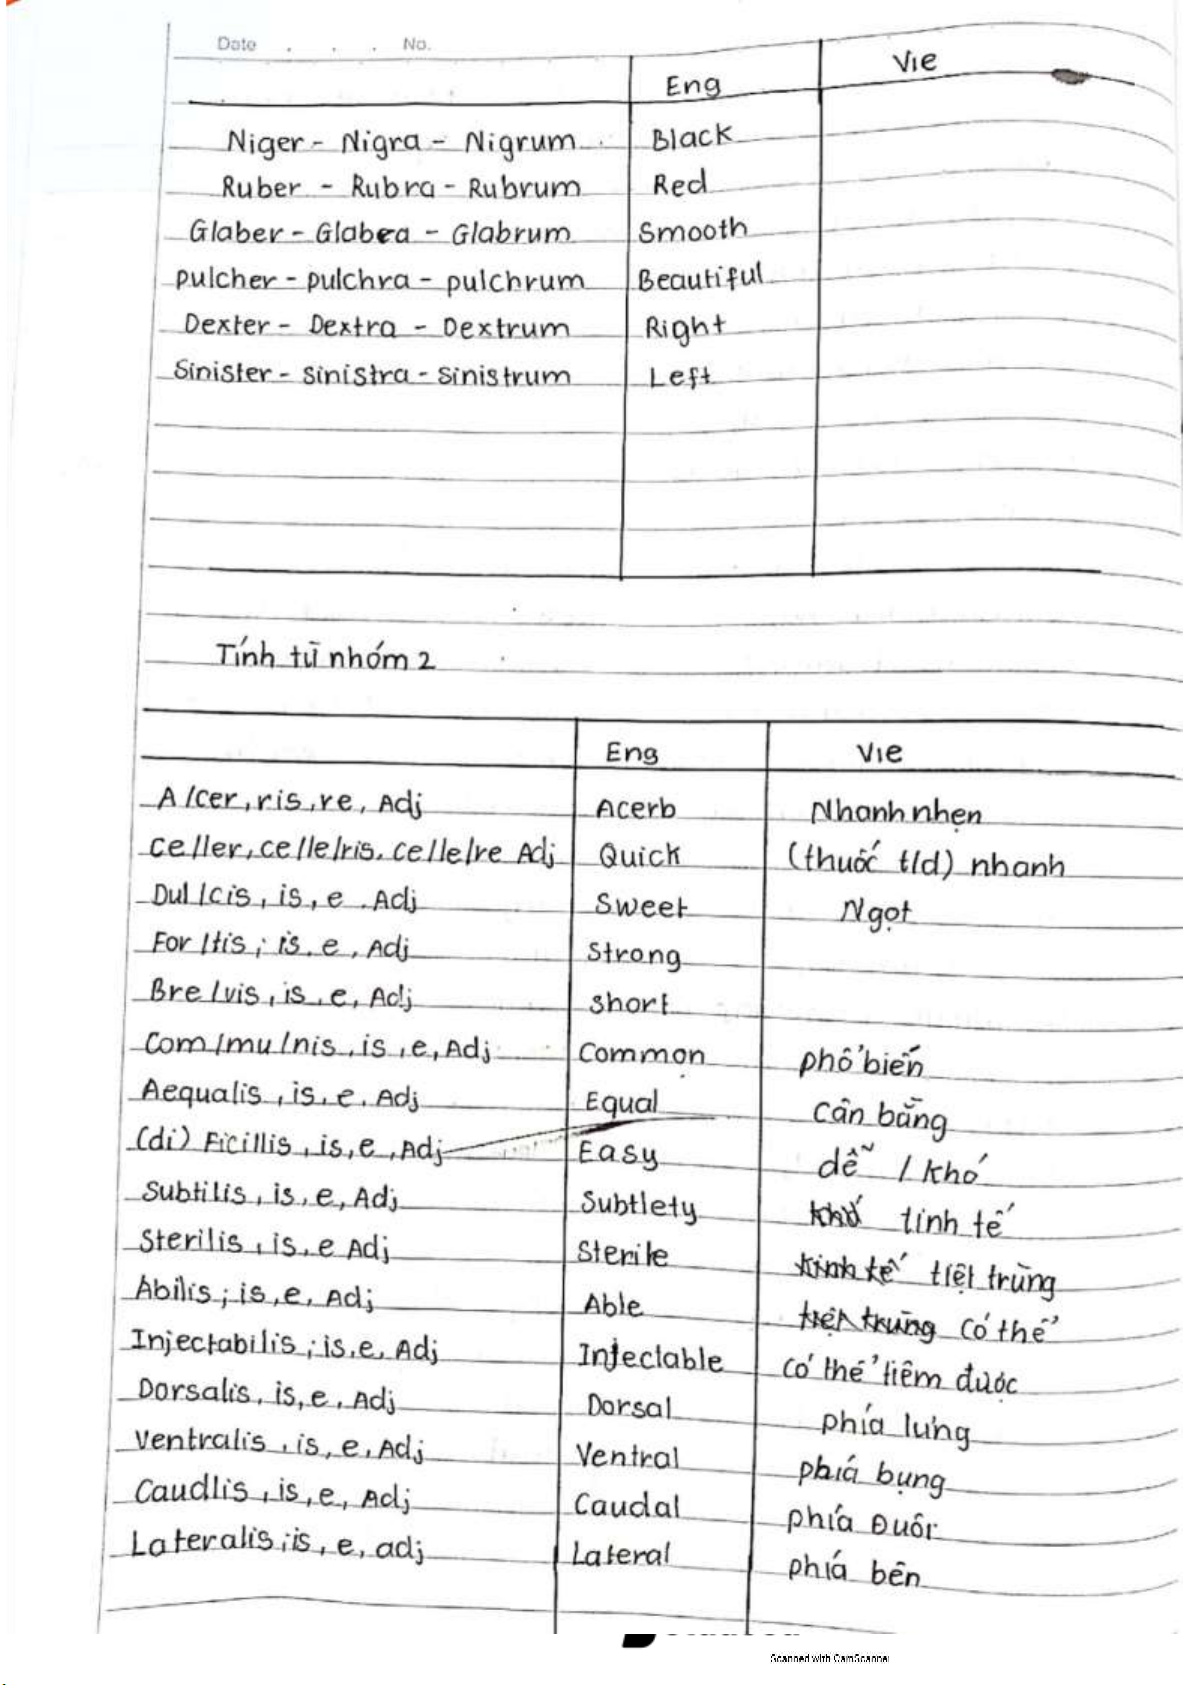 Date . . . No.
Eng Vie
Niger - Nigra - Nigrum Black
Ruber - Rubra - Rubrum Red
Glaber - Glabra - Glabrum Smooth
pulcher - pulchra - pulchrum Beautiful
Dexter - Dextra - Dextrum Right
Sinister - sinistra - sinistrum Left
Tính từ nhóm 2
Eng Vie
A/cer, ris, re, Adj Acerb Nhanh nhẹn
ce/ler, ce/le/ris, ce/le/re Adj Quick (thuốc t/d) nhanh
Dul/cis, is, e, Adj Sweet Ngọt
For/tis; is, e, Adj Strong
Bre/vis, is, e, Adj short
Com/mu/nis, is, e, Adj Common phổ biến
Aequalis, is, e, Adj Equal cân bằng
(di) Ficillis, is, e, Adj Easy dễ / khó
Subtilis, is, e, Adj Subtlety khó tinh tế
Sterilis, is, e Adj Sterile tinh tế tiệt trùng
Abilis; is, e, Adj Able tiệt trùng có thể
Injectabilis; is, e, Adj Injectable có thể tiêm được
Dorsalis, is, e, Adj Dorsal phía lưng
Ventralis, is, e, Adj Ventral phía bụng
Caudlis, is, e, Adj Caudal phía Đuôi
Lateralis; is, e, adj Lateral phía bên
Scanned with CamScanner